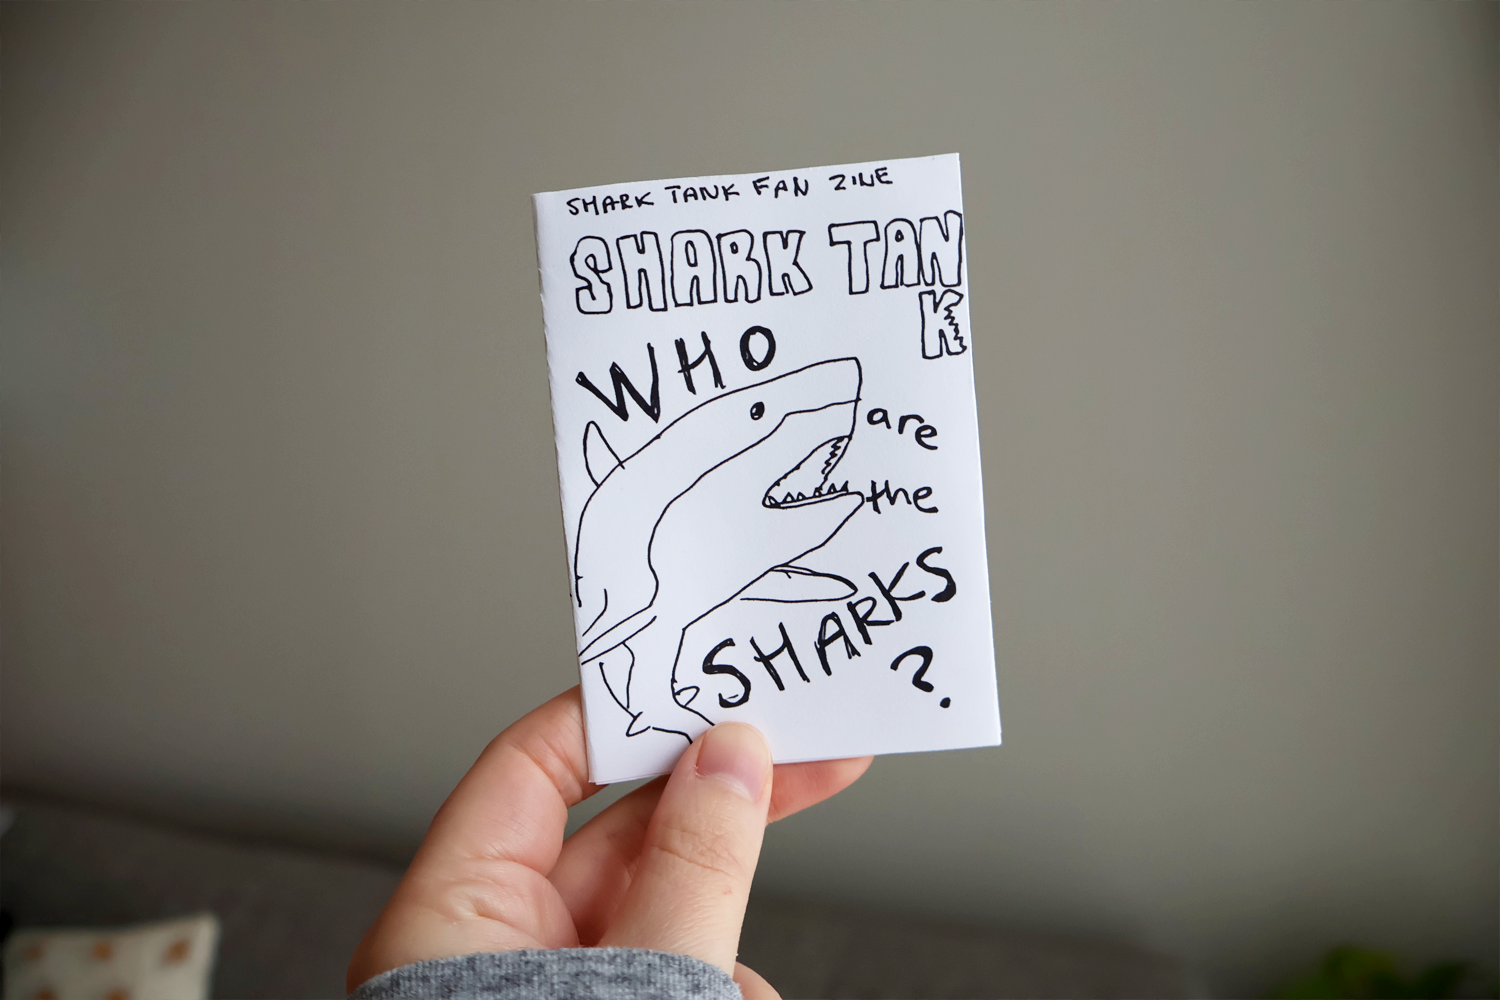 SHARK TANK FAN ZINE
SHARK TAN
K
WHO
are
the
SHARKS
?